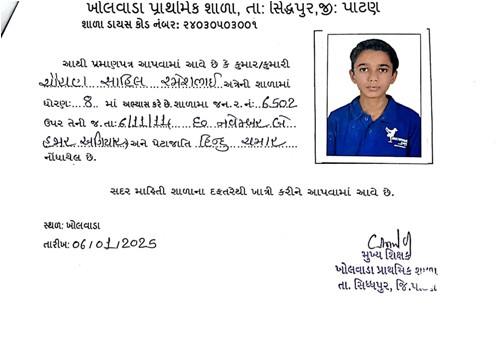 ખોલવાડા પ્રાથમિક શાળા, તા: સિદ્ધપુર,જી: પાટણ
શાળા ડાયસ કોડ નંબર: ૨૪૦૩૦૫૦૩૦૦૧
આથી પ્રમાણપત્ર આપવામાં આવે છે કે કુમાર/કુમારી
સાહિલ રમેશભાઈ અત્રેની શાળામાં
ધોરણ: 8 માં અભ્યાસ કરે છે.શાળામાં જન.ર.નં: 6502
ઉપર તેની જ.તા: 6/11/11 છ નવેમ્બર બે
હજાર અગિયાર અને પેટાજાતિ હિન્દુ ચમાર
નોંધાયેલ છે.
સદર માહિતી શાળાના દફતરેથી ખાત્રી કરીને આપવામાં આવે છે.
સ્થળ: ખોલવાડા
તારીખ: 06/01/2025
મુખ્ય શિક્ષક
ખોલવાડા પ્રાથમિક શાળા
તા. સિધ્ધપુર, જિ.